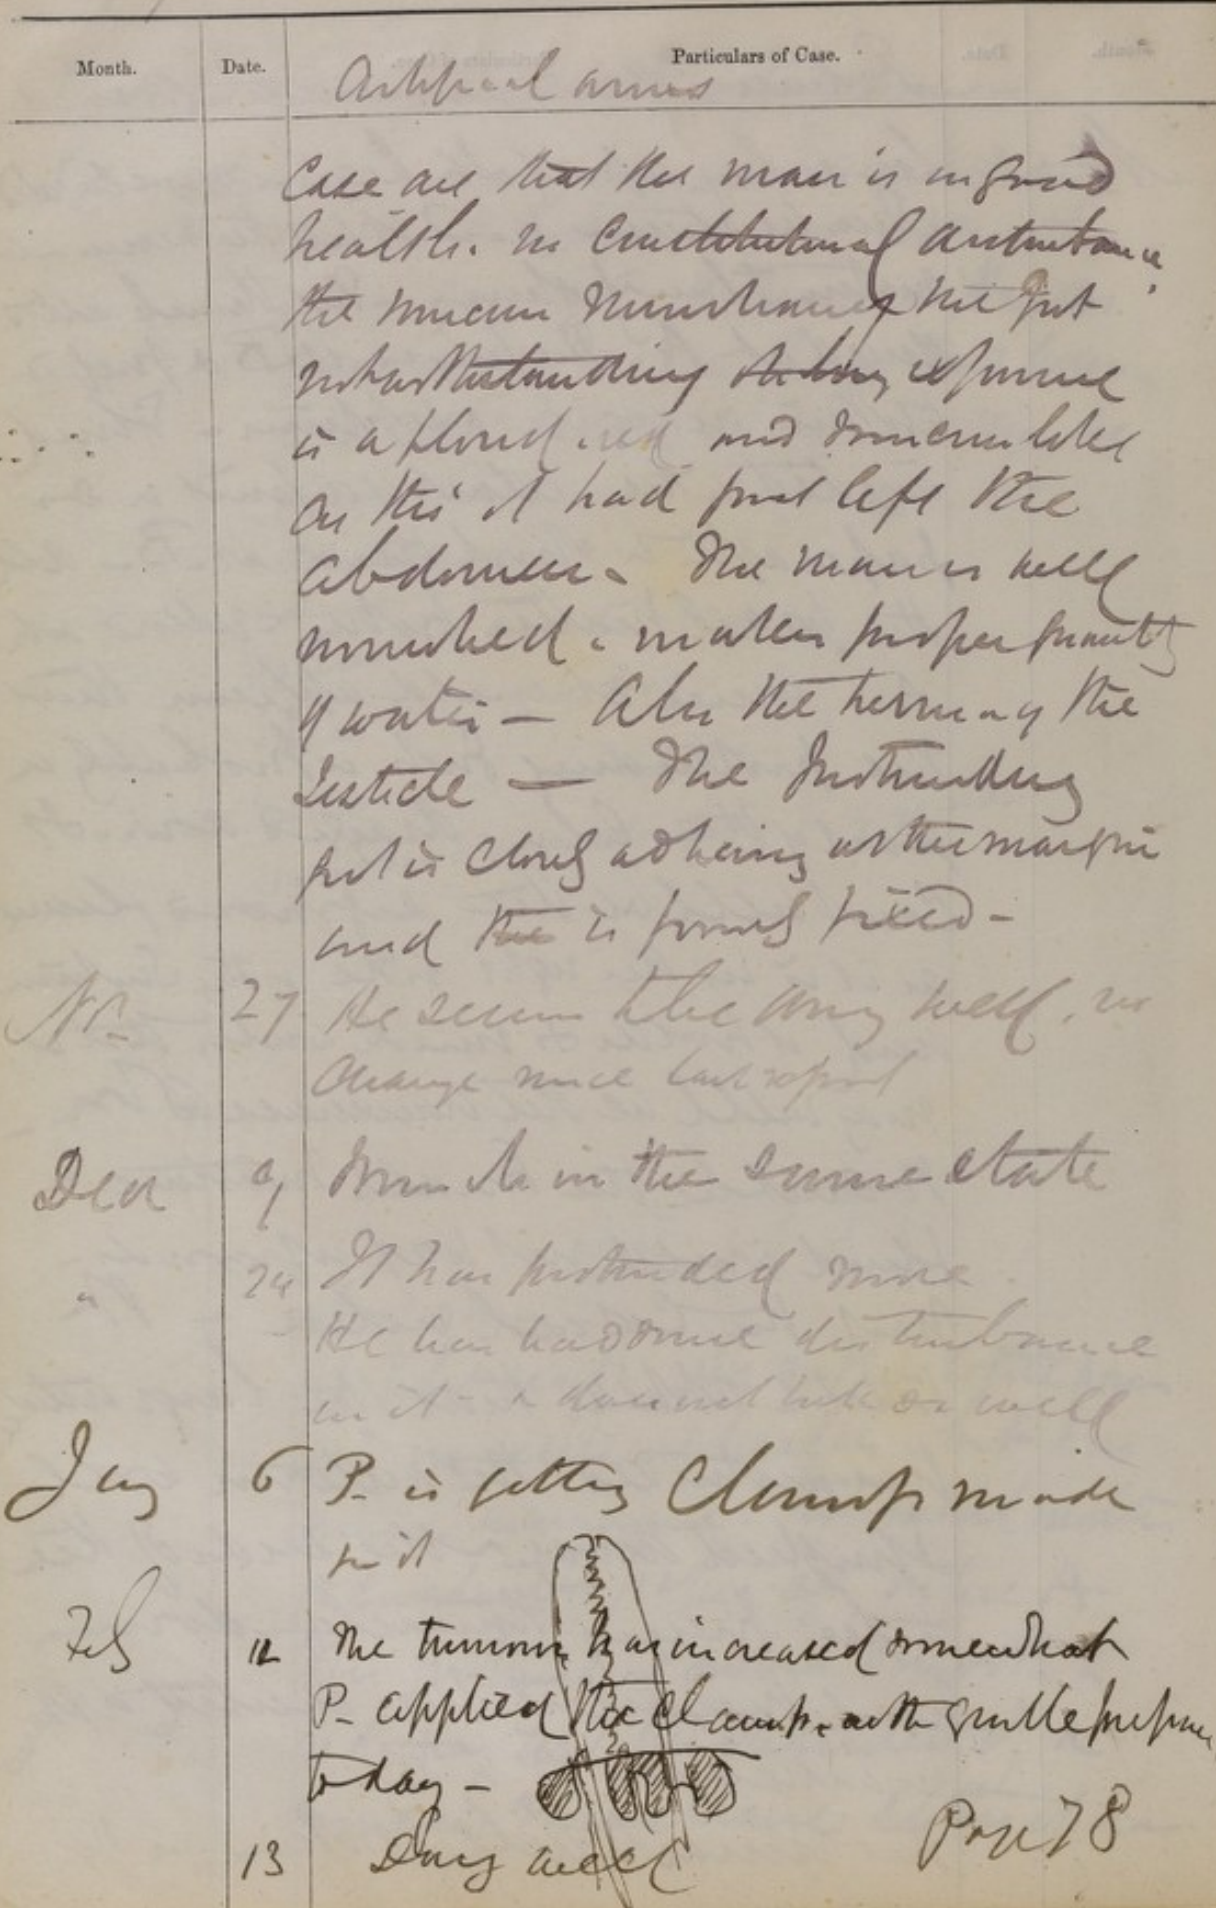 Month. Date. Particulars of Case.
Artificial anus
Case are that the man is in good
health. no Constitutional disturbance,
the mucous Membrane of the gut
notwithstanding its long exposure
is a florid red and
as tho' it had just left the
Abdomen. The man is well
nourished. makes proper quantity
of water — Also the hernia of the
testicle — The Protruding
gut is closely adhering at the margin
and the is firmly fixed —
Nov 27 He seems to be doing well. no
change since last report
Dec 9 Much in the same state
" 24 It has protruded more
He has had some disturbance
in it - & does not look so well
Jany 6 P. is getting Clamps made
for it
Feb 12 The tumour has increased somewhat
P- applied the Clamp. with gentle pressure
today —
13 Doing well
Page 78